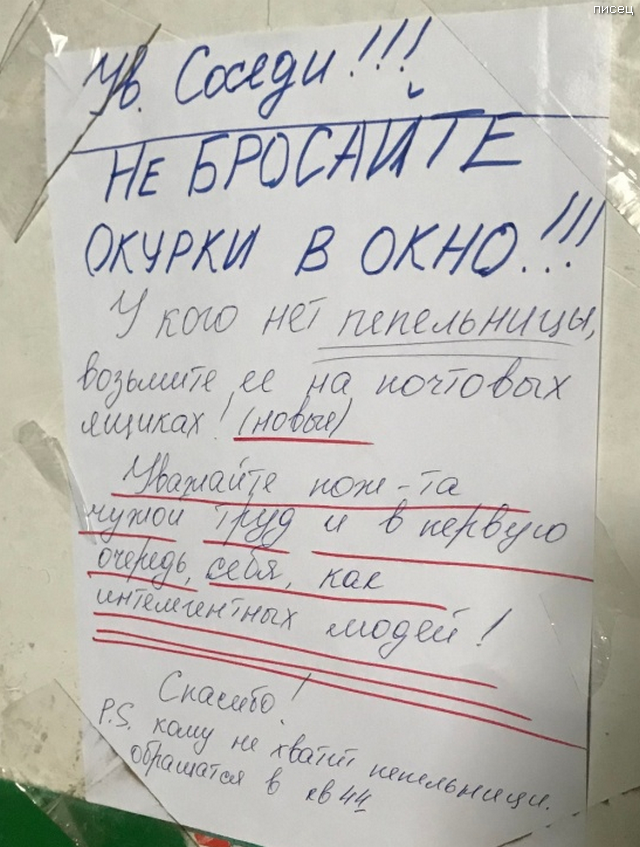 писец
Ув. Соседи!!!
НЕ БРОСАЙТЕ
ОКУРКИ В ОКНО!!!
У кого нет пепельницы,
возьмите ее на почтовых
ящиках! (новые)
Уважайте пож-та
чужой труд и в первую
очередь, себя, как
интелегентных людей!
Спасибо!
P.S. кому не хватит пепельници.
обращатся в кв 44